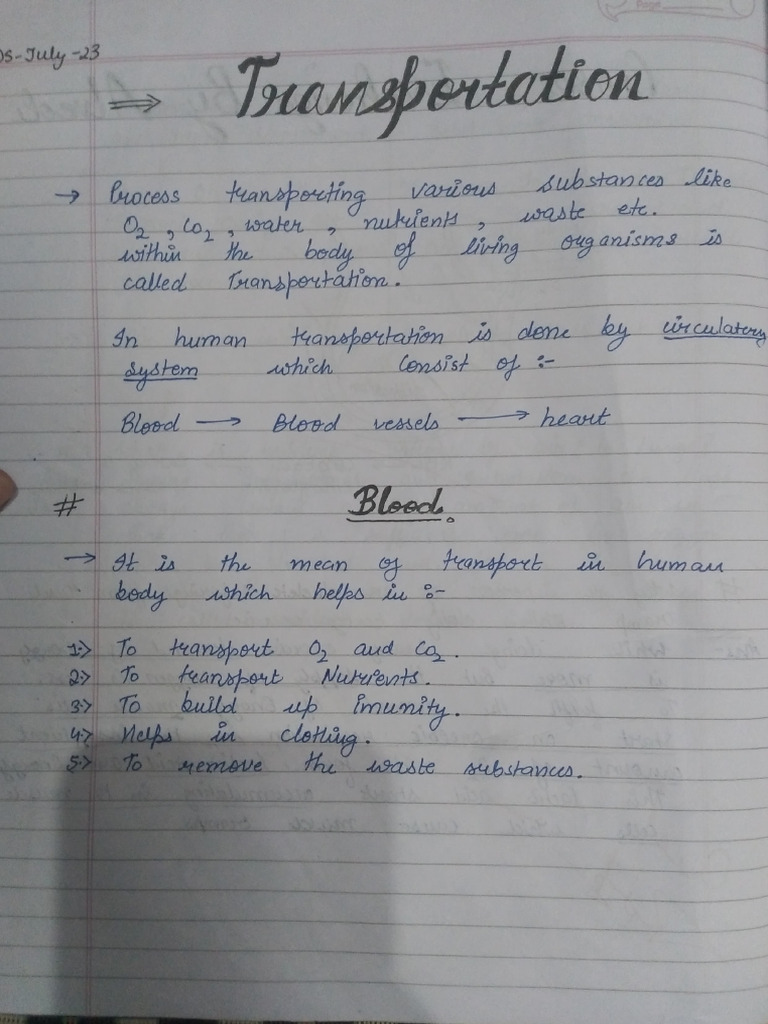 05-July-23
⇒ Transportation
→ Process transporting various substances like
O₂, CO₂, water, nutrients, waste etc.
within the body of living organisms is
called Transportation.
In human transportation is done by circulatory
system which consist of :-
Blood → Blood vessels → heart
# Blood.
→ It is the mean of transport in human
body which helps in :-
1.> To transport O₂ and CO₂.
2.> To transport Nutrients.
3.> To build up imunity.
4.> Helps in clothing.
5.> To remove the waste substances.